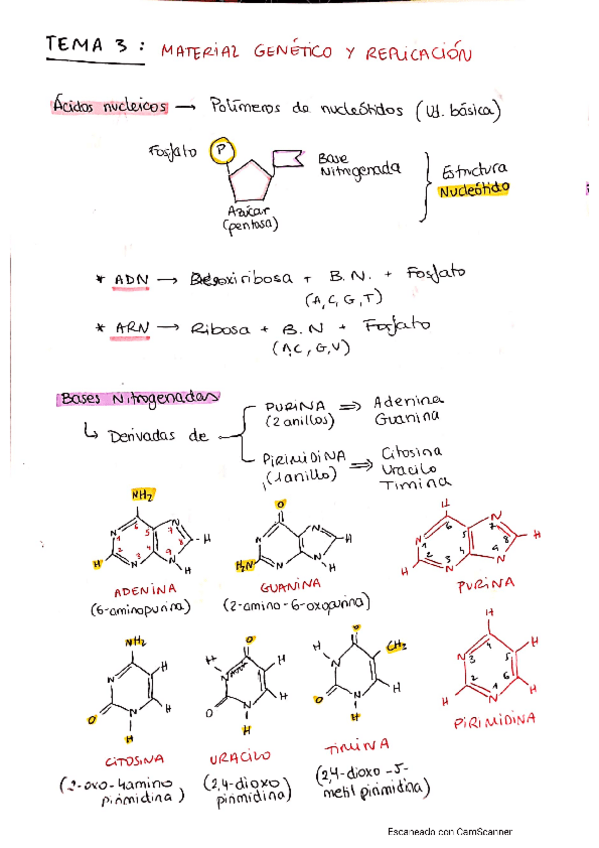 TEMA 3 : MATERIAL GENÉTICO Y REPLICACIÓN
Ácidos nucleicos → Polímeros de nucleótidos (Ud. básica)
Fosfato P Base Nitrogenada
Azúcar (pentosa)
Estructura Nucleótido
* ADN → Desoxirribosa + B.N. + Fosfato
(A,C,G,T)
* ARN → Ribosa + B.N + Fosfato
(A,C,G,U)
Bases Nitrogenadas
↳ Derivadas de
PURINA ⇒ Adenina
(2 anillos) Guanina
PIRIMIDINA ⇒ Citosina
(1 anillo) Uracilo
Timina
NH2
N 1 2 3 4 5 6 7 8 9 N N N H H H
ADENINA
(6-aminopurina)
O
N N N N H H H2N
GUANINA
(2-amino-6-oxopurina)
H
N 1 2 3 4 5 6 7 8 9 N N N H H H
PURINA
NH2
N N H H H O
CITOSINA
(2-oxo-4amino
pirimidina)
O
H N N H H H O
URACILO
(2,4-dioxo
pirimidina)
O
H N N CH3 H H O
TIMINA
(2,4-dioxo-5-
metil pirimidina)
H
N 1 2 3 4 5 6 N H H H
PIRIMIDINA
Escaneado con CamScanner